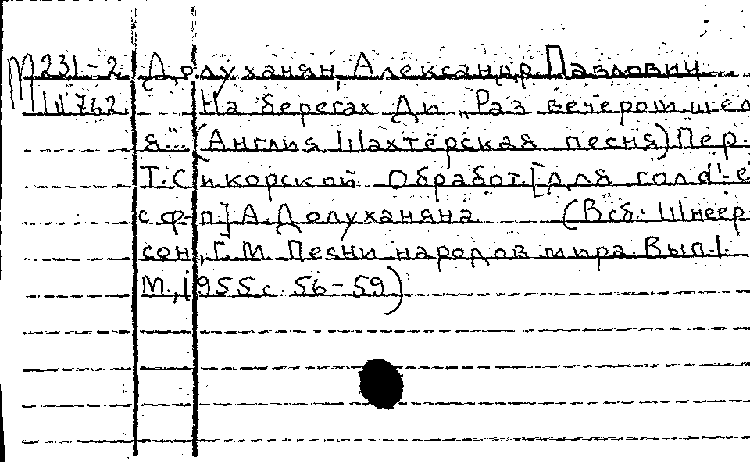 М 231-2 Долуханян, Александр Павлович
11762 На берегах Ди „Раз вечером шел
я..." (Англия Шахтёрская песня) Пер.
Т. Сикорской Обработ. [для голоса
с ф-п] А. Долуханяна (В сб: Шнеер-
сон, Г. М. Песни народов мира. Вып. 1.
М., 1955 с. 56-59)